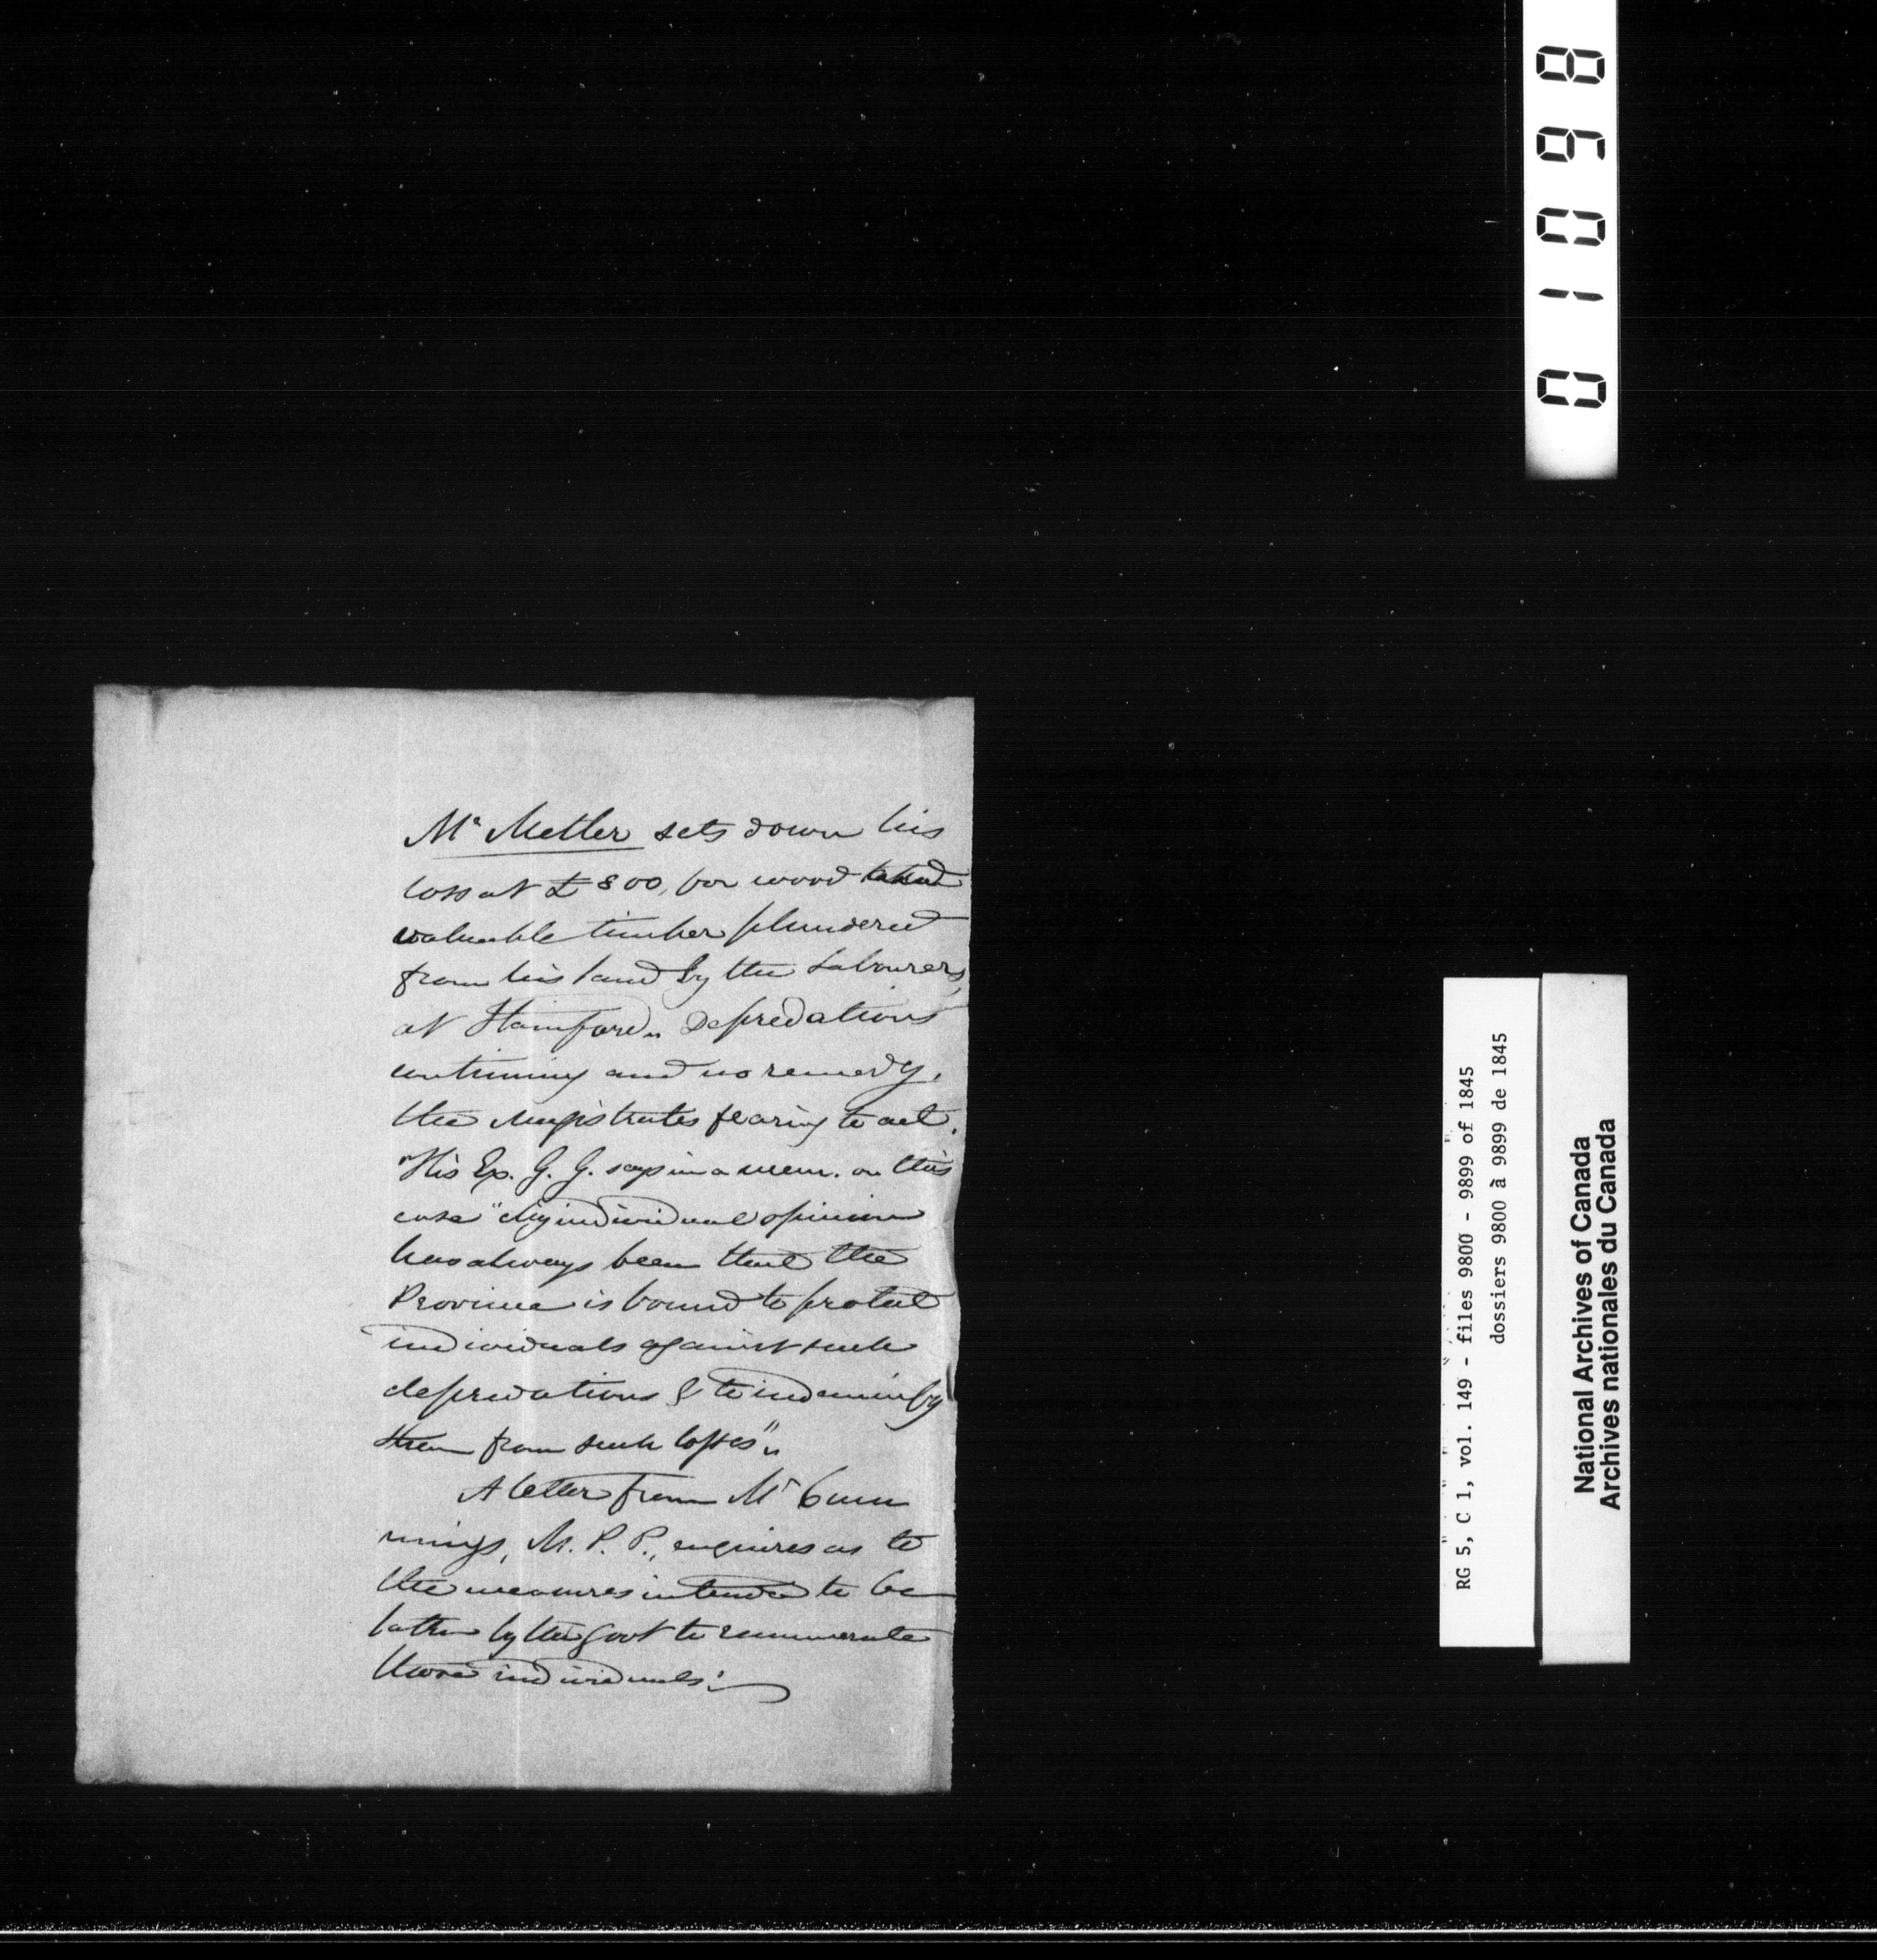 Mr Metler sets down his
loss at £800, for wood and
valuable timber plundered
from his land by the Labourers,
at Stamford. Depredations
continuing and no remedy,
the Magistrates fearing to act.
His Ex. G. G. says in a mem. on this
case "My individual opinion
has always been that the
Province is bound to protect
individuals against such
depredations & to indemnify
them from such losses".
A letter from Mr Cum
mings, M. P. P., enquires as to
the measures intended to be
taken by the Govt to remunerate
those individuals.
01098
RG 5, C 1, vol. 149 - files 9800 - 9899 of 1845
dossiers 9800 à 9899 de 1845
National Archives of Canada
Archives nationales du Canada